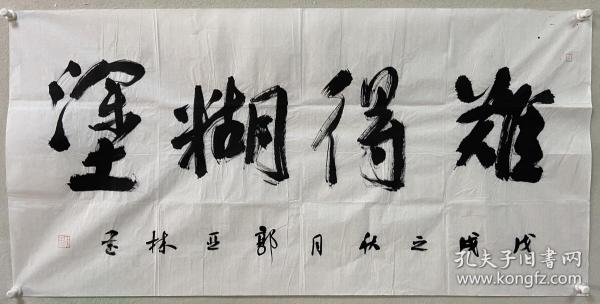 難得糊塗
戊戌之秋月郭亚林书
孔夫子旧书网
www.kongfz.com